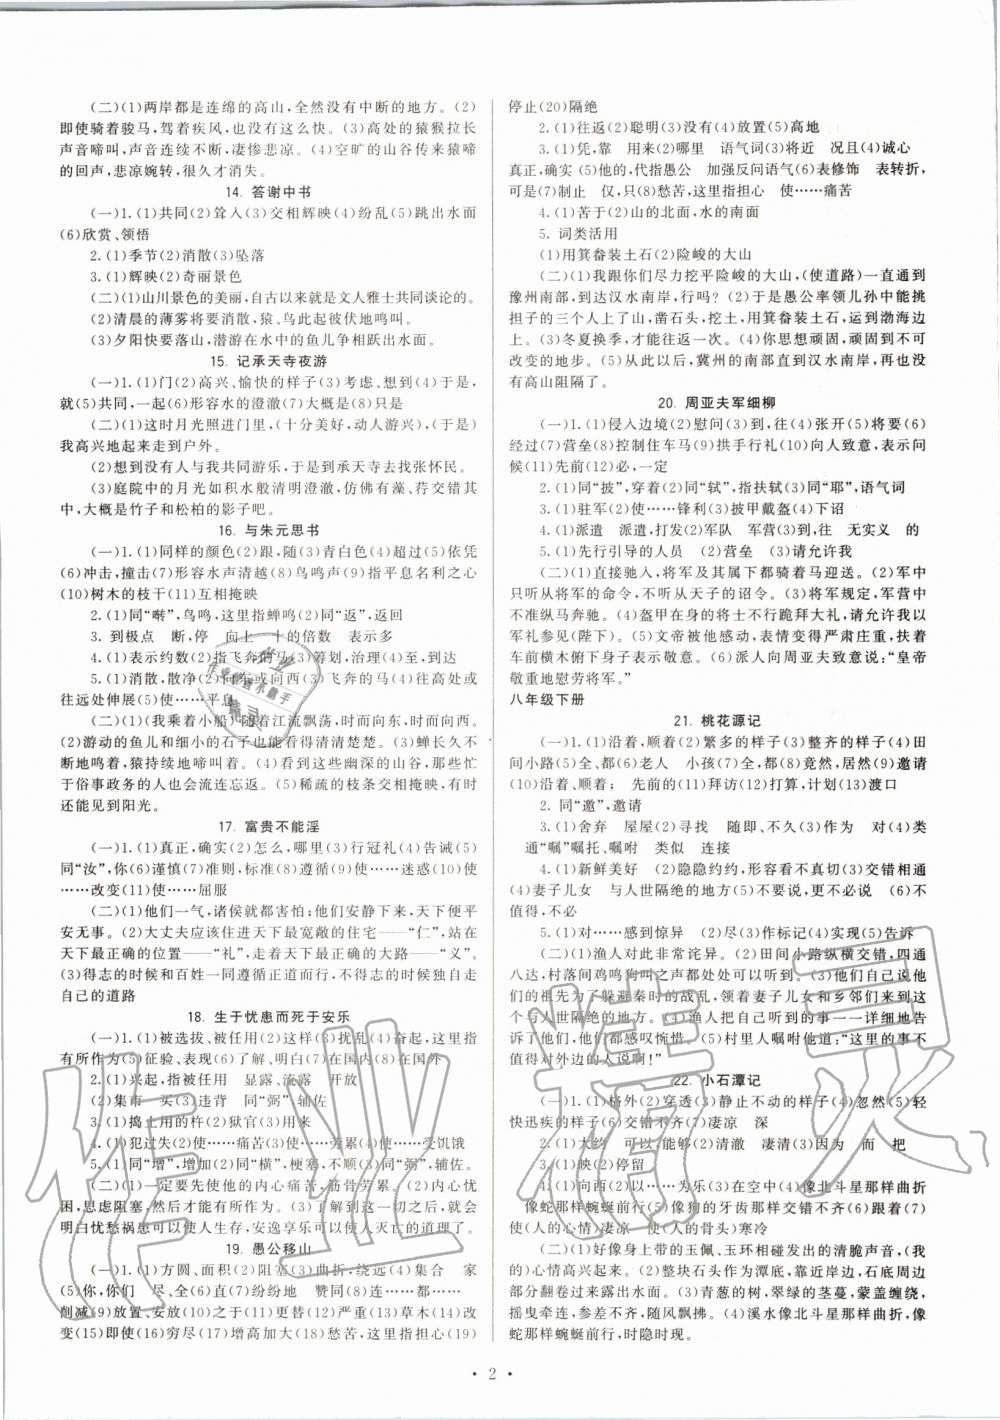 (二)(1)两岸都是连绵的高山,全然没有中断的地方。(2)
即使骑着骏马,驾着疾风,也没有这么快。(3)高处的猿猴拉长
声音啼叫,声音连续不断,凄惨悲凉。(4)空旷的山谷传来猿啼
的回声,悲凉婉转,很久才消失。
14. 答谢中书
(一)1.(1)共同(2)耸入(3)交相辉映(4)纷乱(5)跳出水面
(6)欣赏、领悟
2.(1)季节(2)消散(3)坠落
3.(1)辉映(2)奇丽景色
(二)(1)山川景色的美丽,自古以来就是文人雅士共同谈论的。
(2)清晨的薄雾将要消散,猿、鸟此起彼伏地鸣叫。
(3)夕阳快要落山,潜游在水中的鱼儿争相跳出水面。
15. 记承天寺夜游
(一)1.(1)门(2)高兴、愉快的样子(3)考虑、想到(4)于是,
就(5)共同,一起(6)形容水的澄澈(7)大概是(8)只是
(二)(1)这时月光照进门里,(十分美好,动人游兴),于是
我高兴地起来走到户外。
(2)想到没有人与我共同游乐,于是到承天寺去找张怀民。
(3)庭院中的月光如积水般清明澄澈,仿佛有藻、荇交错其
中,大概是竹子和松柏的影子吧。
16. 与朱元思书
(一)1.(1)同样的颜色(2)跟,随(3)青白色(4)超过(5)飞奔
(6)冲击,撞击(7)形容水声清越(8)鸟鸣声(9)指平息名利之心
(10)树木的枝干(11)互相掩映
2.(1)同“啭”,鸟鸣,这里指蝉鸣(2)同“返”,返回
3. 到极点 断,停 向上 十的倍数 表示多
4.(1)表示约数(2)指飞奔的马(3)筹划,治理(4)至,到达
5.(1)消散,散净(2)向东或向西(3)飞奔的马(4)向高处向
远处伸展(5)使……平息
(二)(1)(我乘着小船)随着江流飘荡,时而向东,时而向西。
(2)游动的鱼儿和细小的石子也可以看得清清楚楚。(3)蝉长久不
断地鸣叫,猿持续地啼叫着。(4)看到这些幽深的山谷,那些忙
于俗事政务的人也会流连忘返。(5)稀疏的枝条交相掩映,有时
还能见到阳光。
17. 富贵不能淫
(一)1.(1)真正,确实(2)怎么,哪里(3)行冠礼(4)告诫(5)
同“汝”,你(6)谨慎(7)准则,标准(8)遵循(9)使……迷惑(10)使
……改变(11)使……屈服
(二)(1)他们一气,诸侯就都害怕;他们安静下来,天下便平
安无事。(2)大丈夫应该住进天下最宽敞的住宅——“仁”,站在
天下最正确的位置——“礼”,走着天下最正确的大路——“义”。
(3)得志的时候和百姓一同遵循正道而行;不得志的时候独自走
自己的道路
18. 生于忧患而死于安乐
(一)1.(1)被选拔、被任用(2)这样(3)扰乱(4)奋起,这里指
有所作为(5)征验、表现(6)了解、明白(7)在国内(8)在国外
2.(1)兴起,指被任用 显露、流露 开放
(2)集市 买(3)违背 同“弼”辅佐
3.(1)捣土用的杵(2)官(3)用来
4.(1)犯过失(2)使……痛苦(3)使……劳累(4)使……受饥饿
5.(1)同“增”,增加(2)同“横”,梗塞,不顺(3)同“弼”,辅佐。
(二)(1)一定要先使他的内心痛苦,筋骨劳累。(2)内心忧
困,思虑阻塞,然后才能有所作为。(3)如果这样以后,就会
明白忧愁祸患可以使人生存,安逸享乐可以使人灭亡的道理了。
19. 愚公移山
(一)1.(1)方圆、面积(2)阻塞(3)曲折,绕远(4)集合 家
(5)你,你们 尽(6)直(7)纷纷地 赞同(8)连……都……
削减(9)放置、安放(10)之于(11)更替(12)严重(13)草木(14)改
变(15)即使(16)穷尽(17)增高加大(18)愁苦,这里指担心(19)
停止(20)隔绝
2.(1)往返(2)聪明(3)没有(4)放置(5)高地
3.(1)凭,靠 用来(2)哪里 语气词(3)将近 况且(4)诚心
真正,确实(5)他的,代指愚公 加强反问语气(6)表修饰 表转折,
可是(7)制止 仅,只(8)愁苦,这里指担心 使……痛苦
4.(1)苦于(2)山的北面,水的南面
5. 词类活用
(1)用箕畚装土石(2)险峻的大山
(二)(1)我跟你们尽力挖平险峻的大山,(使道路)一直通到
豫州南部,到达汉水南岸,行吗?(2)于是愚公率领儿孙中能挑
担子的三个人上了山,凿石头,挖土,用箕畚装土石,运到渤海边
上。(3)冬夏换季,才能往返一次。(4)你思想顽固,顽固到不可
改变的地步。(5)从此以后,冀州的南部直到汉水南岸,再也没
有高山阻隔了。
20. 周亚夫军细柳
(一)1.(1)侵入边境(2)慰问(3)一会儿(4)张开(5)将要(6)
经过(7)营垒(8)控制住车马(9)拱手行礼(10)向人致意,表示问
候(11)先前(12)必,一定
2.(1)同“披”,穿着(2)同“轼”,指扶轼(3)同“耶”,语气词
3.(1)驻军(2)使……锋利(3)披甲戴盔(4)下诏
4.(1)派遣 派遣,打发(2)军队 军营(3)到,往 无实义 的
5.(1)先行引导的人员 (2)营垒 (3)请允许我
(二)(1)直接驰入,将军及其属下都骑着马迎送。(2)军中
只听从将军的命令,不听从天子的命令。(3)将军规定,军营中
不准纵马奔驰。(4)盔甲在身的将士不能行跪拜大礼,请允许我以
军礼参见(陛下)。(5)文帝被他感动了,表情变得严肃庄重,扶着
车前横木俯下身子表示敬意。(6)派人向周亚夫致意说:“皇帝
敬重地慰劳将军。”
八年级下册
21. 桃花源记
(一)1.(1)沿着,顺着(2)繁多的样子(3)整齐的样子(4)田
间小路(5)全,都(6)老人 小孩(7)全,都(8)竟然,居然(9)邀请
(10)沿着、顺着 先前的(11)拜访(12)打算,计划(13)渡口
2. 同“邀”,邀请
3.(1)舍弃 屋屋(2)寻找 随即、不久(3)作为 对(4)类
通“嘱”嘱托、嘱咐 类似 连接
4.(1)新鲜美好 (2)隐隐约约,形容看不真切(3)交错相通
(4)妻子儿女 与人世隔绝的地方(5)不要说,更不必说 (6)不
值得,不必
5.(1)对……感到惊异 (2)尽(3)作标记(4)实用(5)告诉
(二)(1)渔人对此非常诧异。(2)田间小路纵横交错,四通
八达,村落间鸡鸣狗叫之声都处处可以听到。(3)他们说他们
的祖先为了躲避秦时的战乱,领着妻子儿女和乡邻们来到了这
个与人世隔绝的地方。(4)渔人把自己听到的事一一详细地告
诉了他们,他们都感叹惋惜。(5)村里人嘱咐他道:“这里的事不
值得对外边的人说啊!”
22. 小石潭记
(一)1.(1)格外(2)穿透(3)静止不动的样子(4)忽然(5)轻
快迅疾的样子(6)交错不齐(7)凄凉 深
2.(1)大约 可以,能够(2)清澈 凄清(3)因为 而 把
3.(1)映(2)停留
4.(1)向西(2)以……为乐(3)在空中(4)像北斗星那样曲折
像蛇那样蜿蜒前行(5)像狗的牙齿那样交错不齐(6)凄凉(7)
使(人的心情)凄凉 使(人的骨头)寒冷
(二)(1)好像身上带的玉佩、玉环相碰发出的清脆声音,(我
的)心情高兴起来。(2)整块石头作为潭底,靠近岸边,石底周边
部分翻卷过来露出水面。(3)青葱的树,翠绿的茎蔓,蒙盖缠绕,
摇曳牵连,参差不齐,随风飘拂。(4)溪水像北斗星那样曲折,像
蛇那样蜿蜒前行,时隐时现。
· 2 ·
作业精灵